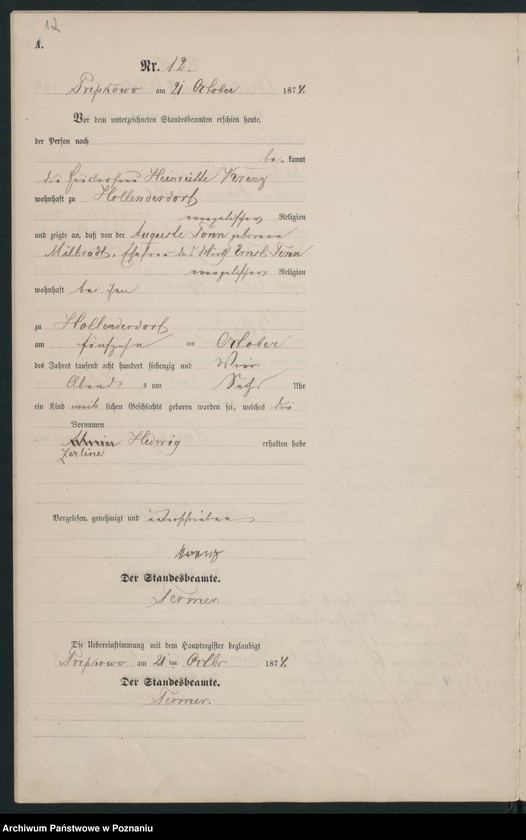 12
A.
Nr. 12.
am 21 October 1874.
Vor dem unterzeichneten Standesbeamten erschien heute,
der Person nach
be kannt
die Heinriette Krenz
wohnhaft zu Hollenderdorf
evangelischer Religion
und zeigte an, daß von der Auguste Tonn geborene
Milbradt, Ehefrau des Wirth Ernst Tonn
evangelischer Religion
wohnhaft bei ihm
zu Hollenderdorf
am fünfzehn ten October
des Jahres tausend acht hundert siebenzig und Vier
Abends um Sechs Uhr
ein Kind weib lichen Geschlechts geboren worden sei, welches die
Vornamen
Hedwig erhalten habe
Zerline
Vorgelesen, genehmigt und unterschrieben
Krenz
Der Standesbeamte.
Die Uebereinstimmung mit dem Hauptregister beglaubigt
am 21 ten Octbr 1874.
Der Standesbeamte.
Archiwum Państwowe w Poznaniu